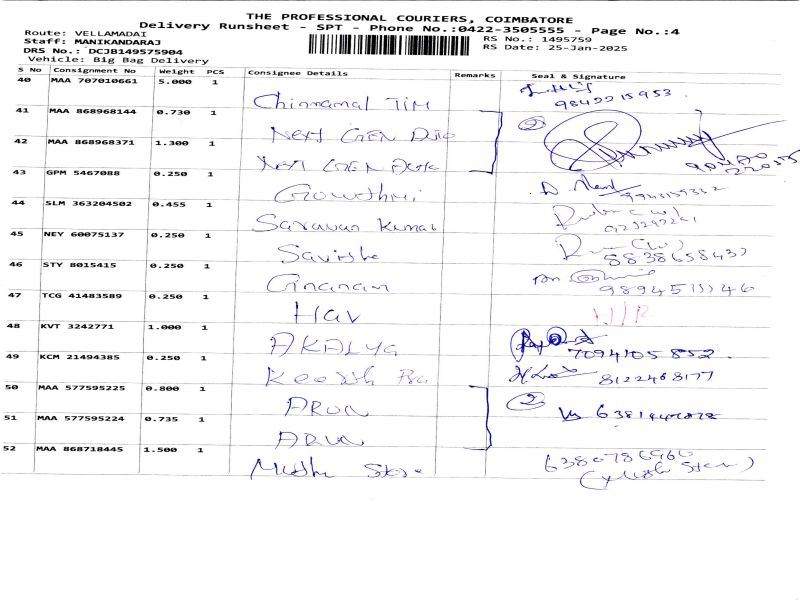 THE PROFESSIONAL COURIERS, COIMBATORE
Delivery Runsheet - SPT - Phone No.:0422-3505555 - Page No.:4
Route: VELLAMADAI
Staff: MANIKANDARAJ
DRS No.: DCJB149575904
RS No.: 1495759
RS Date: 25-Jan-2025
Vehicle: Big Bag Delivery
S No Consignment No Weight PCS Consignee Details Remarks Seal & Signature
40 MAA 707010661 5.000 1 Chinnamal TIM 9842215953
41 MAA 868968144 0.730 1 Next GEN Duo 2
42 MAA 868968371 1.300 1 Next GEN
43 GPM 5467088 0.250 1 Gowthmi
44 SLM 363204502 0.455 1 Saravan Kumar
45 NEY 60075137 0.250 1 8838658437
46 STY 8015415 0.250 1 Gnanam
47 TCG 41483589 0.250 1 Hav
48 KVT 3242771 1.000 1 AKALYA 7094105852
49 KCM 21494385 0.250 1 8122468177
50 MAA 577595225 0.800 1 ARUN 2
51 MAA 577595224 0.735 1 ARUN
52 MAA 868718445 1.500 1 Store 6380786960